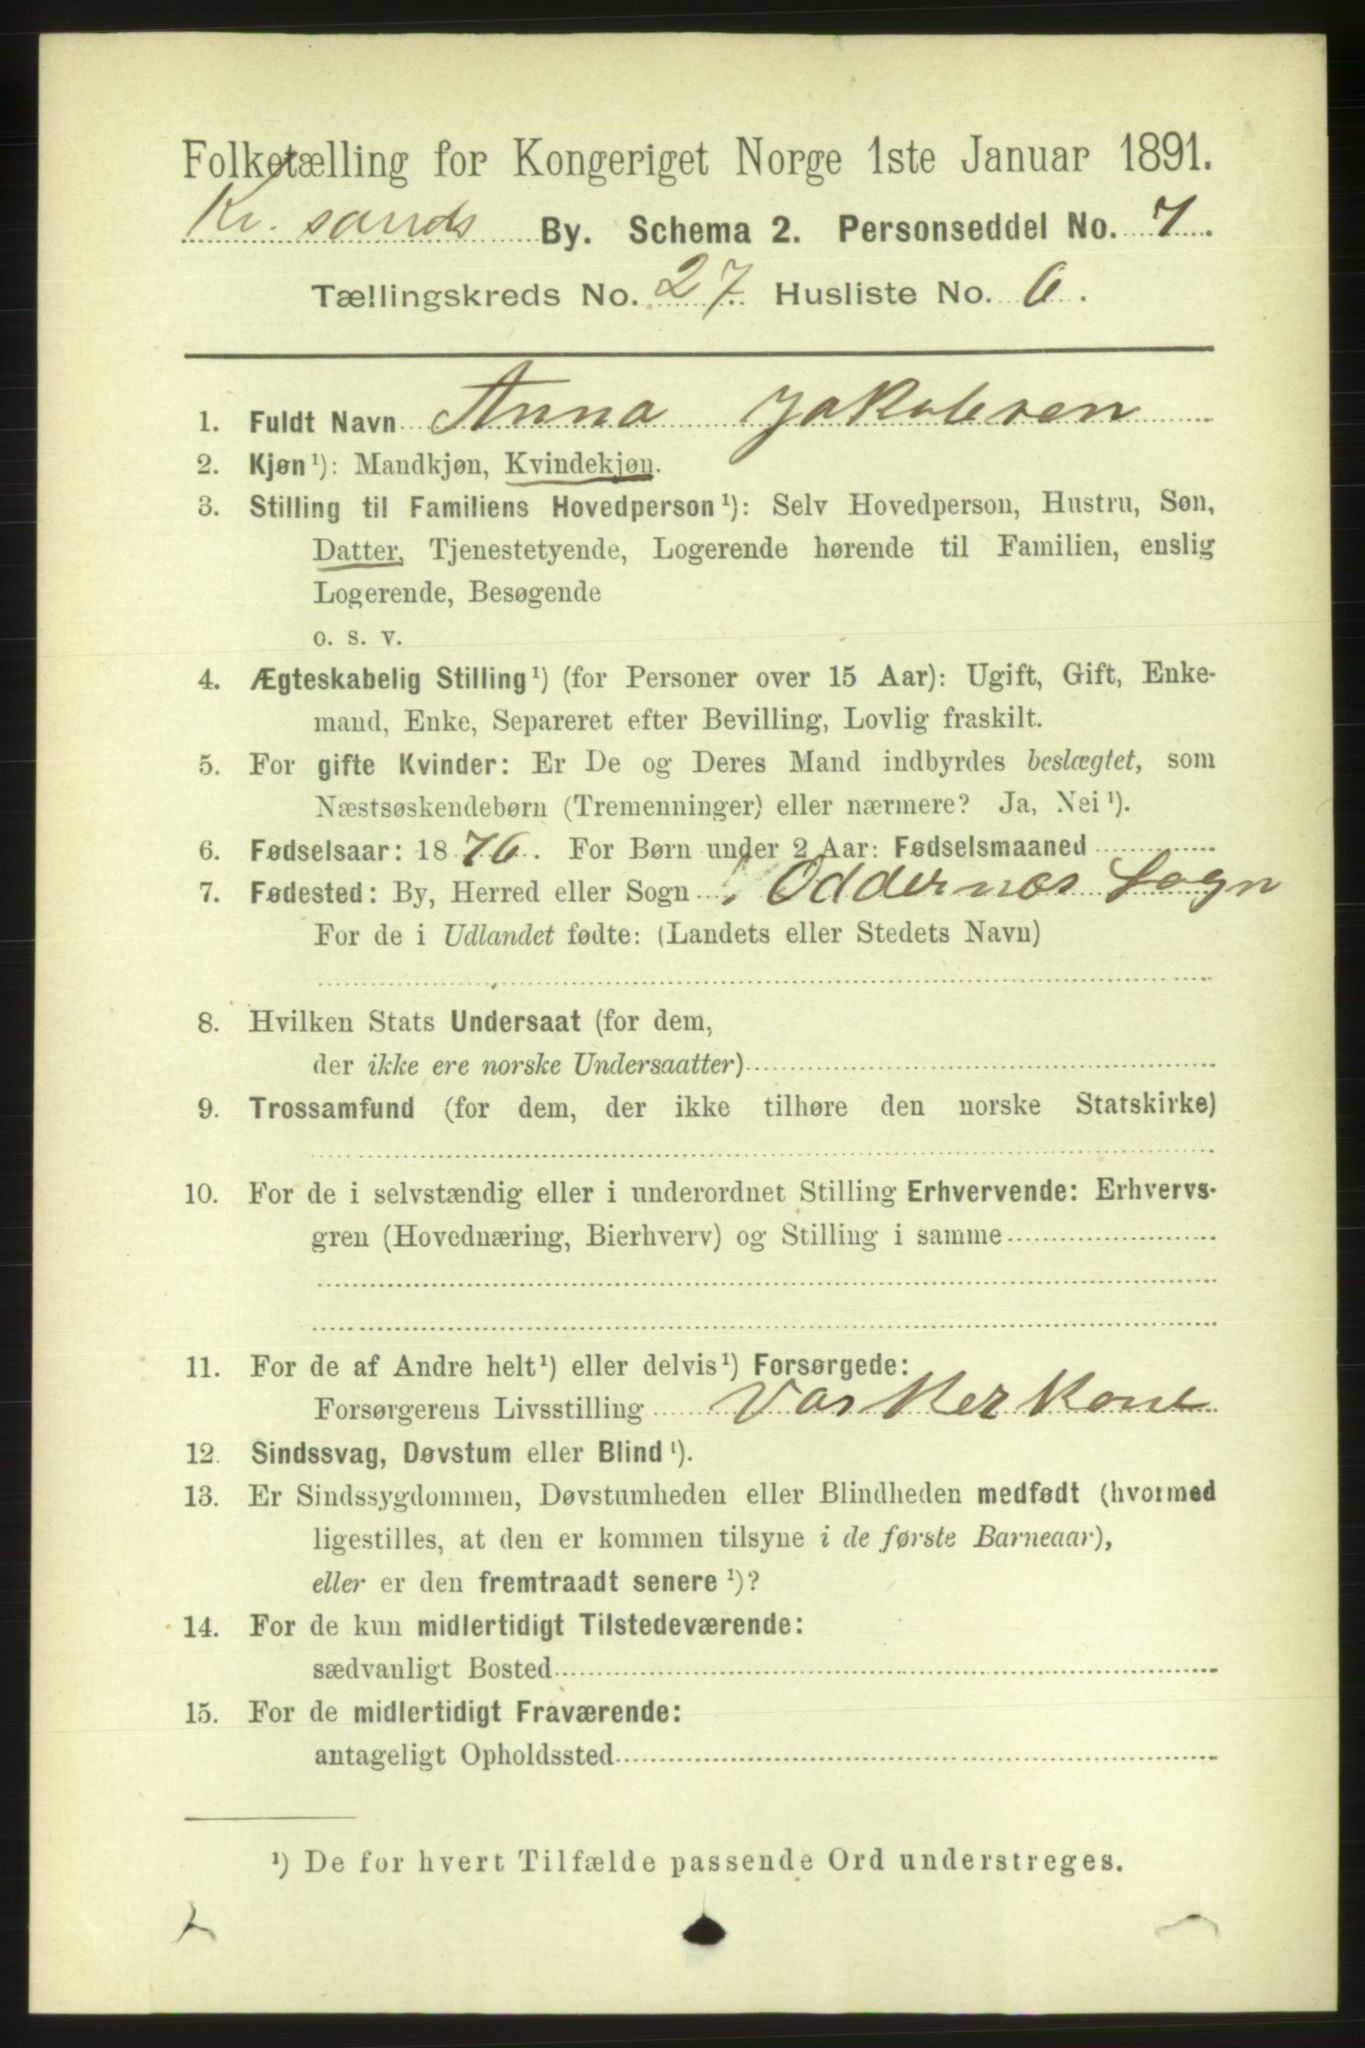 Folketælling for Kongeriget Norge 1ste Januar 1891.
Kr. sands By. Schema 2. Personseddel No. 7.
Tællingskreds No. 27. Husliste No. 6.
1. Fuldt Navn Anna Jakobsen
2. Kjøn¹): Mandkjøn, Kvindekjøn.
3. Stilling til Familiens Hovedperson¹): Selv Hovedperson, Hustru, Søn,
Datter, Tjenestetyende, Logerende hørende til Familien, enslig
Logerende, Besøgende
o. s. v.
4. Ægteskabelig Stilling¹) (for Personer over 15 Aar): Ugift, Gift, Enke-
mand, Enke, Separeret efter Bevilling, Lovlig fraskilt.
5. For gifte Kvinder: Er De og Deres Mand indbyrdes beslægtet, som
Næstsøskendebørn (Tremenninger) eller nærmere? Ja, Nei¹).
6. Fødselsaar: 1876. For Børn under 2 Aar: Fødselsmaaned
7. Fødested: By, Herred eller Sogn Oddernæs Sogn
For de i Udlandet fødte: (Landets eller Stedets Navn)
8. Hvilken Stats Undersaat (for dem,
der ikke ere norske Undersaatter)
9. Trossamfund (for dem, der ikke tilhøre den norske Statskirke)
10. For de i selvstændig eller i underordnet Stilling Erhvervende: Erhvervs-
gren (Hovednæring, Bierhverv) og Stilling i samme
11. For de af Andre helt¹) eller delvis¹) Forsørgede:
Forsørgerens Livsstilling Vaskerkone
12. Sindssvag, Døvstum eller Blind¹).
13. Er Sindssygdommen, Døvstumheden eller Blindheden medfødt (hvormed
ligestilles, at den er kommen tilsyne i de første Barneaar),
eller er den fremtraadt senere¹)?
14. For de kun midlertidigt Tilstedeværende:
sædvanligt Bosted
15. For de midlertidigt Fraværende:
antageligt Opholdssted
¹) De for hvert Tilfælde passende Ord understreges.